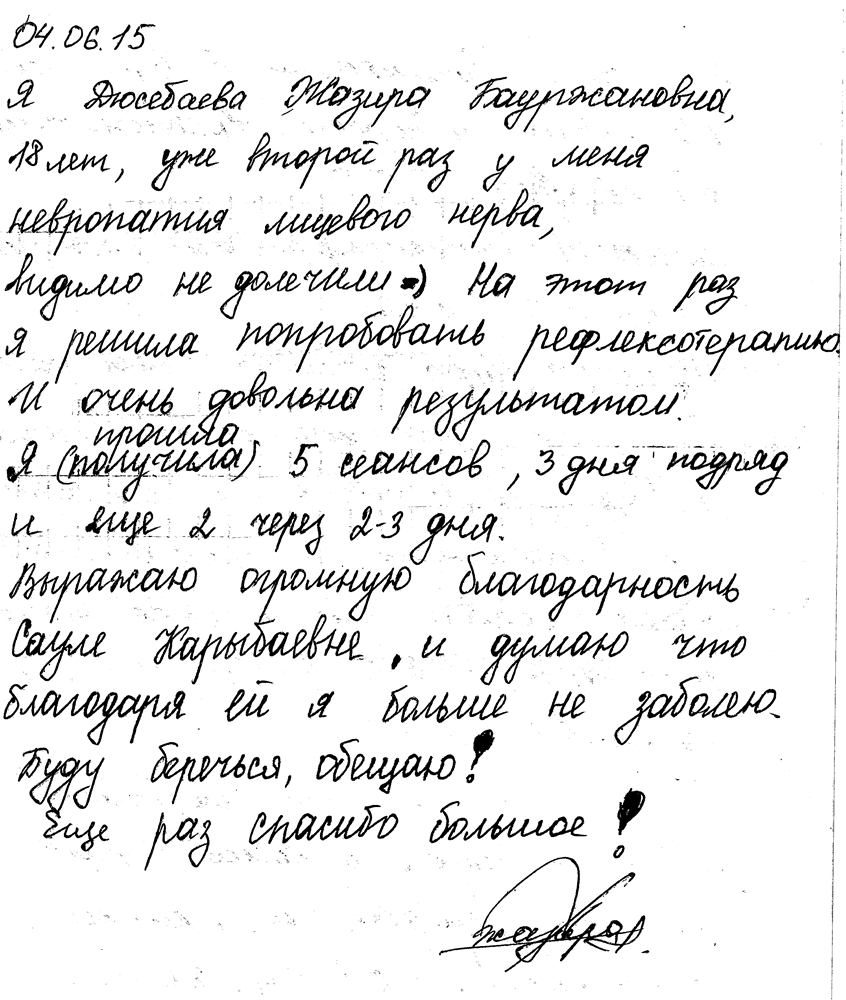 04.06.15
Я Дюсебаева Жазира Бауржановна,
18 лет, уже второй раз у меня
невропатия лицевого нерва,
видимо не долечили =) На этот раз
я решила попробовать рефлексотерапию.
И очень довольна результатом.
прошла
Я (получила) 5 сеансов, 3 дня подряд
и еще 2 через 2-3 дня.
Выражаю огромную благодарность
Сауле Карыбаевне, и думаю что
благодаря ей я больше не заболею.
Буду беречься, обещаю!
Еще раз спасибо большое!
Жазира